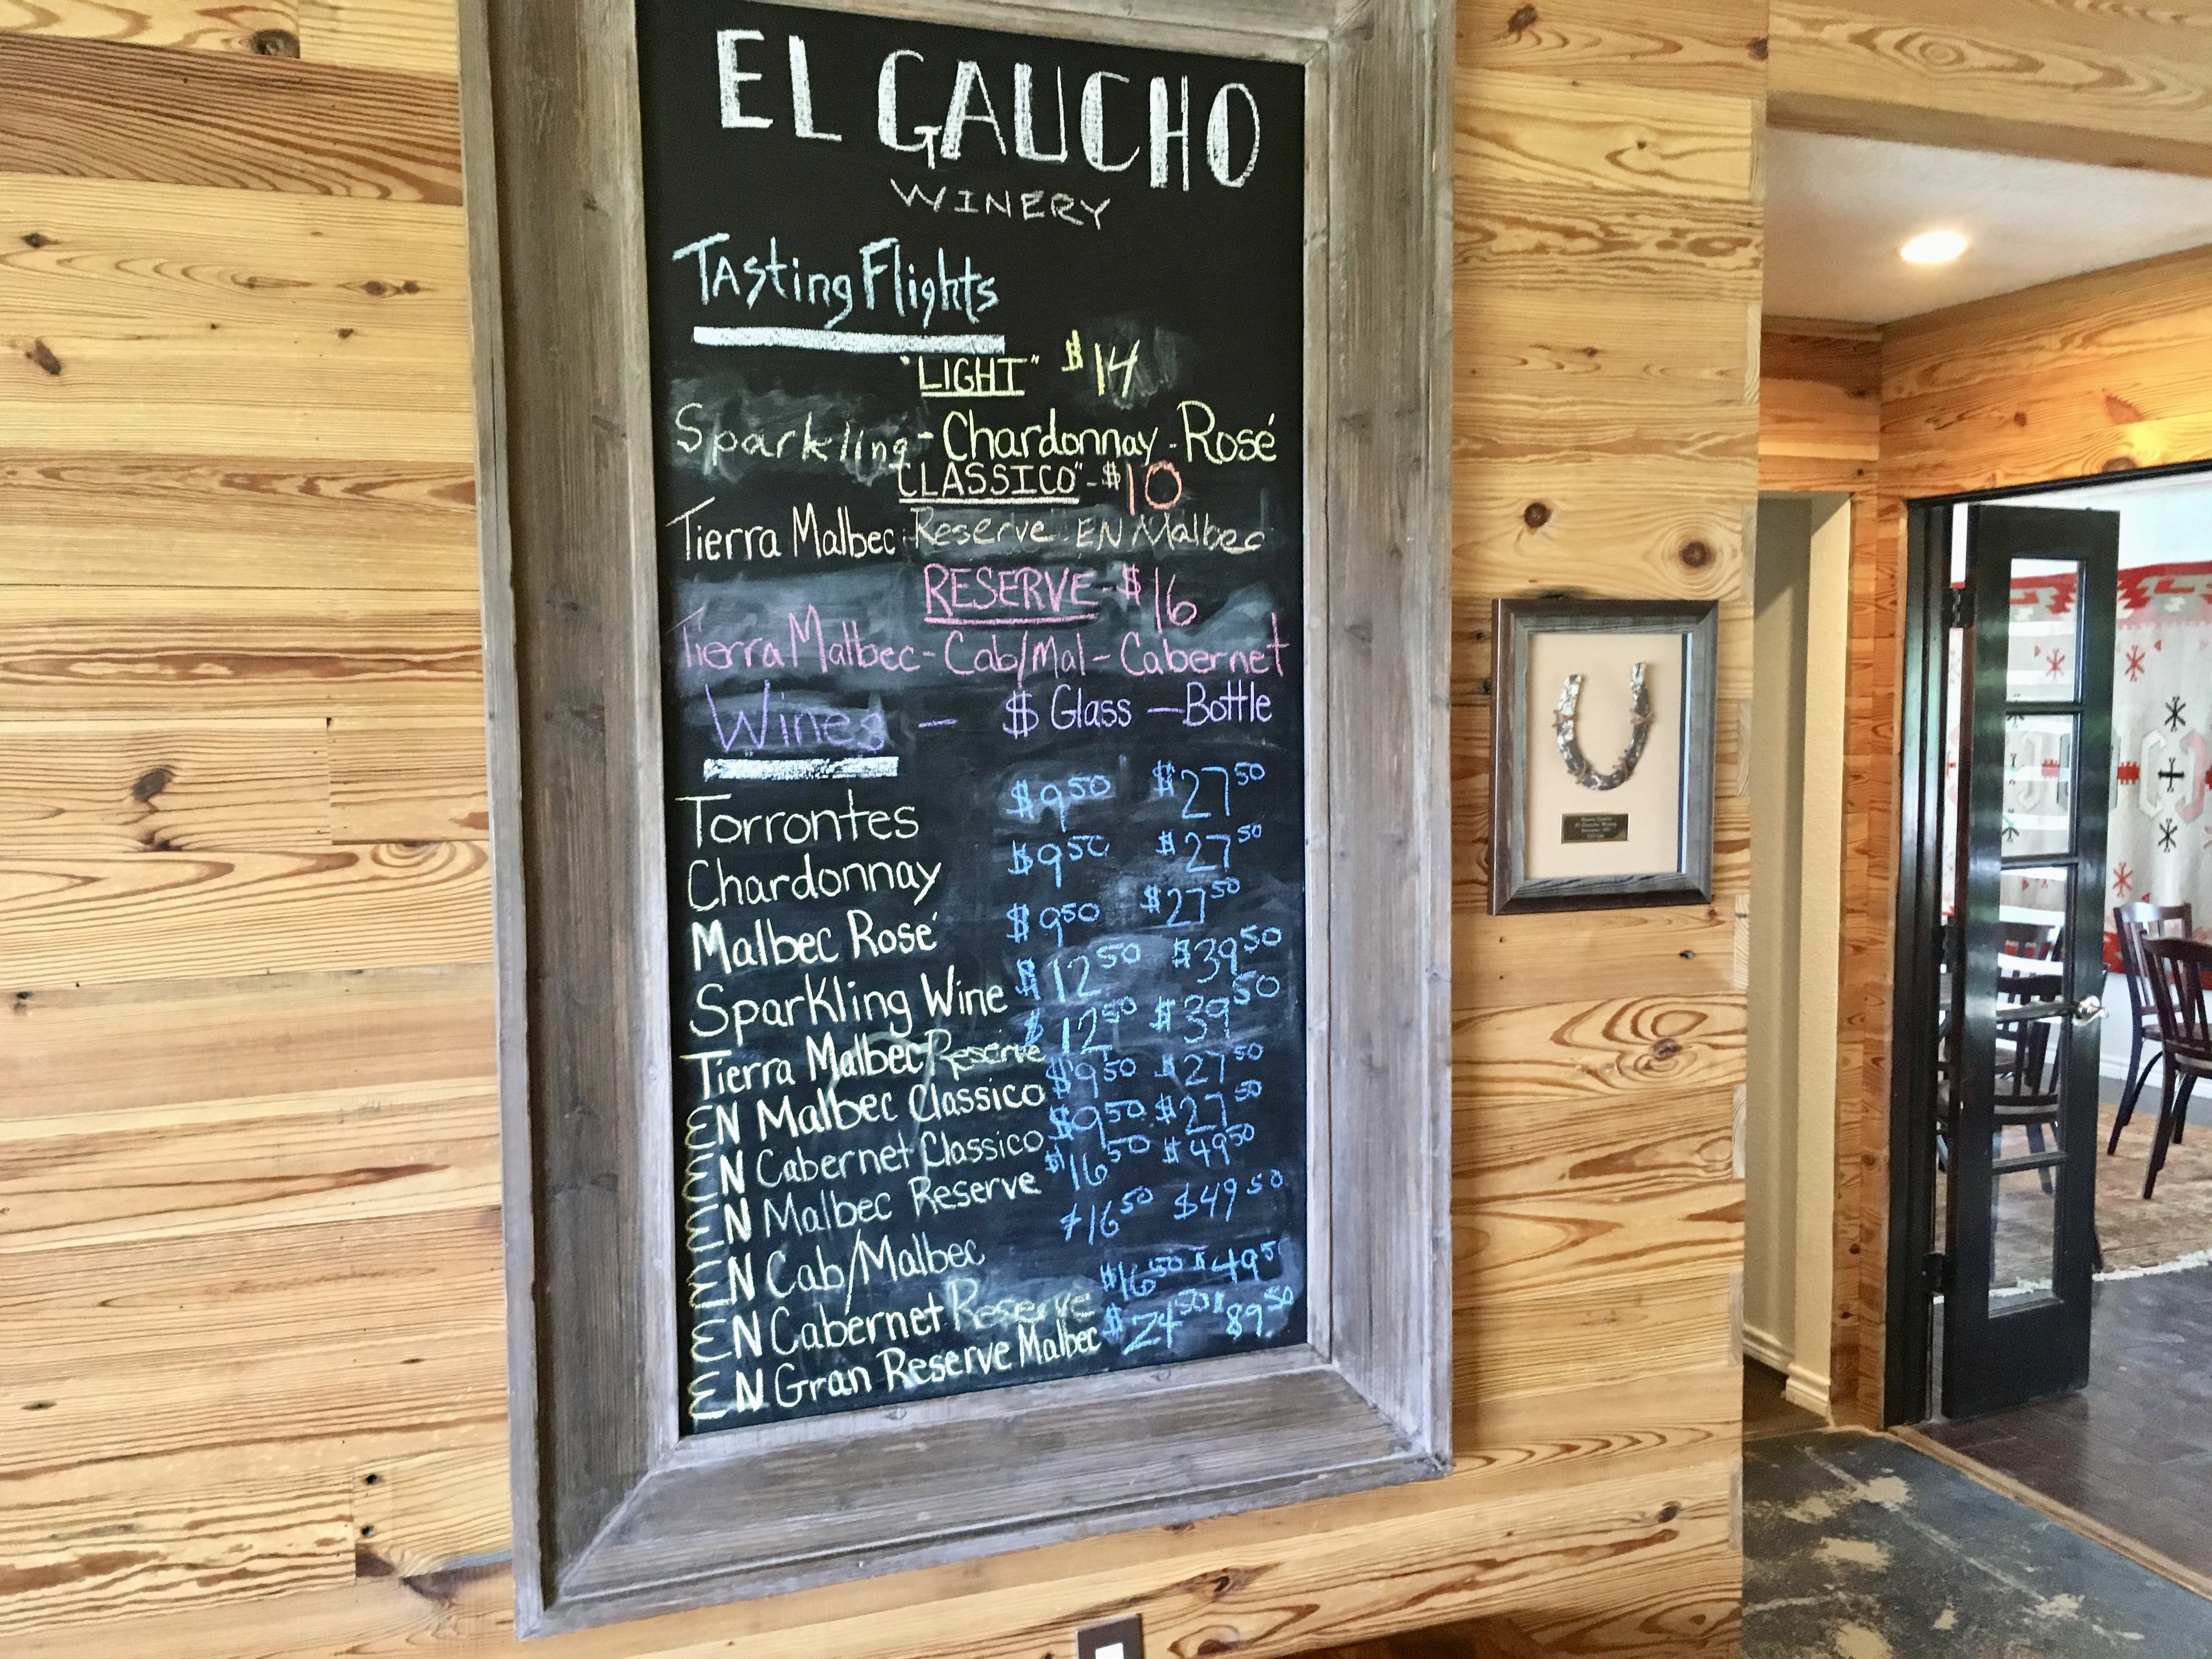 EL GAUCHO
WINERY
Tasting Flights
"LIGHT" $14
Sparkling - Chardonnay - Rosé
CLASSICO" - $10
Tierra Malbec Reserve EN Malbec
RESERVE - $16
Tierra Malbec - Cab/Mal - Cabernet
Wines - $ Glass - Bottle
Torrontes $9.50 $27.50
Chardonnay $9.50 $27.50
Malbec Rosé $9.50 $27.50
Sparkling Wine $12.50 $39.50
Tierra Malbec Reserve $12.50 $39.50
EN Malbec Classico $9.50 $27.50
EN Cabernet Classico $9.50 $27.50
EN Malbec Reserve $16.50 $49.50
EN Cab/Malbec $16.50 $49.50
EN Cabernet Reserve $16.50 $49.5
EN Gran Reserve Malbec $24.50 $89.50